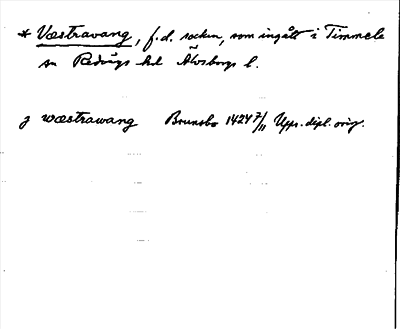 * Væstravang, f.d. socken, som ingått i Timmele
sn Redvägs hd Älvsborgs l.
j wæstrawang Brunsbo 1424 7/11 Upps. dipl. orig.